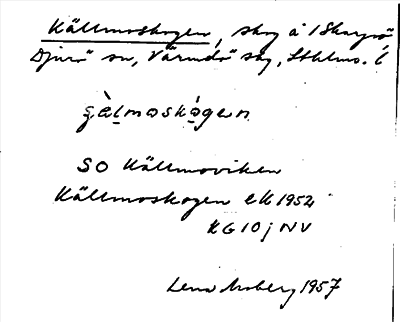 Källmoskogen, skog å 1 Skarpö
Djurö sn, Värmdö sg, Sthlms. l
gälmoskògen
SO Källmoviken
Källmoskogen ek 1952
KG 10 j NV
Lena Moberg 1957